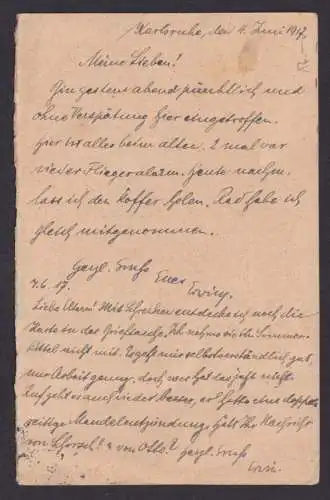 Karlsruhe, den 4. Juni 1917.
Meine Lieben!
Bin gestern abend pünktlich und
ohne Verspätung hier eingetroffen.
Hier ist alles beim alten. 2 mal war
wieder Fliegeralarm. Heute nachm.
lass ich den Koffer holen. Rad habe ich
gleich mitgenommen.
Herzl. Gruss
Euer
Erwin.
7.6.17.
Liebe Eltern! Mit Schrecken entdecke ich noch die
Karte in der Brieftasche. Ich nehme sie im Sommer-
kittel nicht mit. Es geht mir selbstverständlich gut,
nur Arbeit genug, doch
auch wieder besser, er hatte eine doppel-
seitige Mandelentzündung. Habt Ihr Nachricht
von u. von Otto? Herzl. Gruss
Erwin.